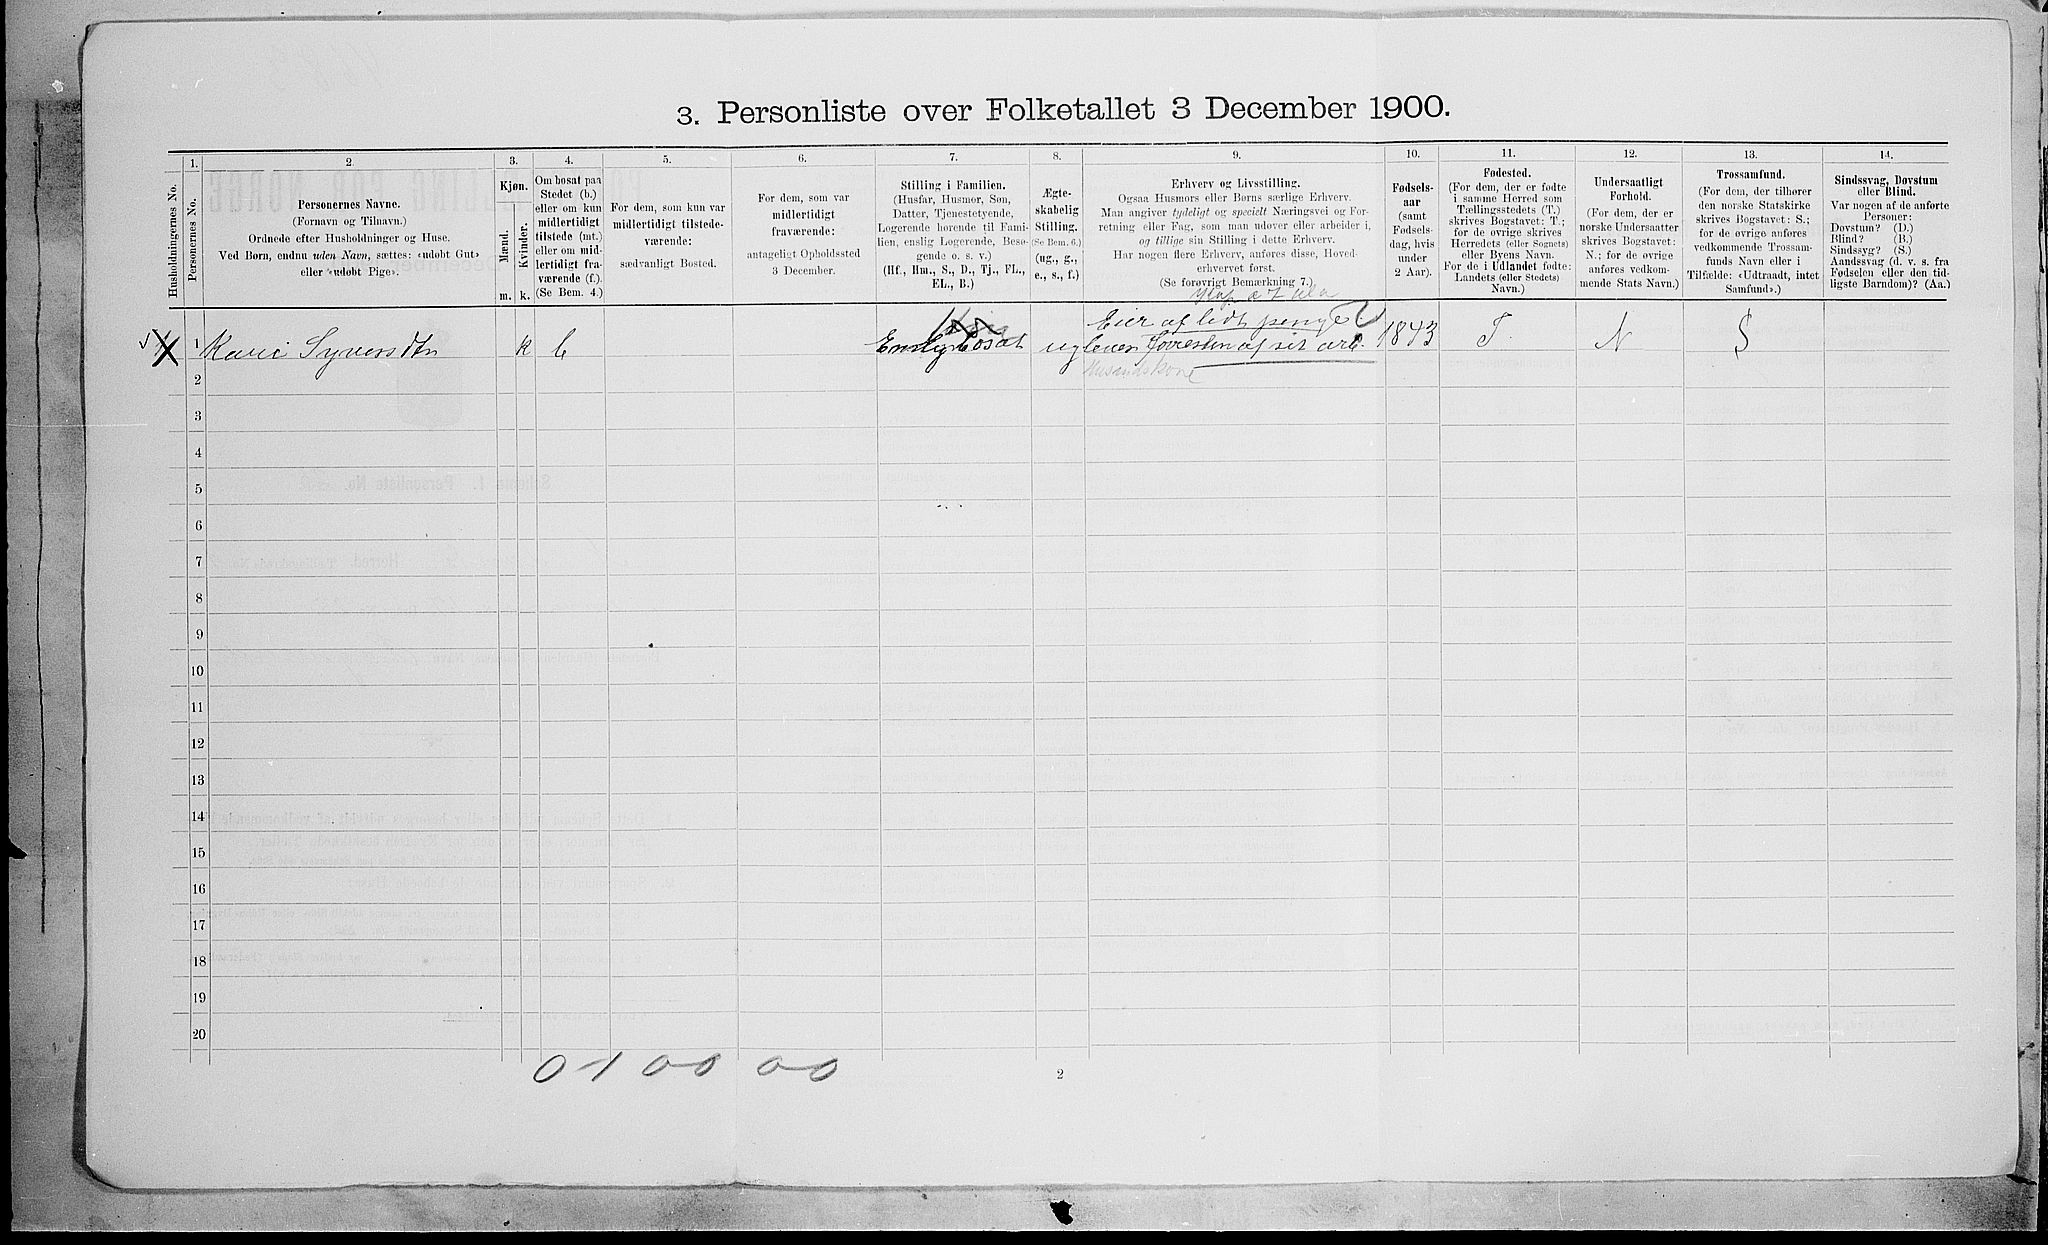 3. Personliste over Folketallet 3 December 1900.
Husholdningernes No.
1.
Personernes No.
2.
Personernes Navne.
(Fornavn og Tilnavn.)
Ordnede efter Husholdninger og Huse.
Ved Børn, endnu uden Navn, sættes: «udøbt Gut»
eller «udøbt Pige».
3.
Kjøn.
Mænd.
Kvinder.
m. k.
4.
Om bosat paa
Stedet (b.)
eller om kun
midlertidigt
tilstede (mt.)
eller om mid-
lertidigt fra-
værende (f.).
(Se Bem. 4.)
5.
For dem, som kun var
midlertidigt tilstede-
værende:
sædvanligt Bosted.
6.
For dem, som var
midlertidigt
fraværende:
antageligt Opholdssted
3 December.
7.
Stilling i Familien.
(Husfar, Husmor, Søn,
Datter, Tjenestetyende,
Logerende hørende til Fami-
lien, enslig Logerende, Besø-
gende o. s. v.)
(Hf., Hm., S., D., Tj., FL.,
EL., B.)
8.
Ægte-
skabelig
Stilling.
(Se Bem. 6.)
(ug., g.,
e., s., f.)
9.
Erhverv og Livsstilling.
Ogsaa Husmors eller Børns særlige Erhverv.
Man angiver tydeligt og specielt Næringsvei og For-
retning eller Fag, som man udøver eller arbeider i,
og tillige sin Stilling i dette Erhverv.
Har nogen flere Erhverv, anføres disse, Hoved-
erhvervet først.
(Se forøvrigt Bemærkning 7.)
10.
Fødsels-
aar
(samt
Fødsels-
dag, hvis
under
2 Aar).
11.
Fødested.
(For dem, der er fødte
i samme Herred som
Tællingsstedets (T.)
skrives Bogstavet: T.;
for de øvrige skrives
Herredets (eller Sognets)
eller Byens Navn.
For de i Udlandet fødte:
Landets (eller Stedets)
Navn.)
12.
Undersaatligt
Forhold.
(For dem, der er
norske Undersaatter
skrives Bogstavet:
N.; for de øvrige
anføres vedkom-
mende Stats Navn.)
13.
Trossamfund.
(For dem, der tilhører
den norske Statskirke
skrives Bogstavet: S.;
for de øvrige anføres
vedkommende Trossam-
funds Navn eller i
Tilfælde: «Udtraadt, intet
Samfund».)
14.
Sindssvag, Døvstum
eller Blind.
Var nogen af de anførte
Personer:
Døvstum? (D.)
Blind? (B.)
Sindssyg? (S.)
Aandssvag (d. v. s. fra
Fødselen eller den tid-
ligste Barndom)? (Aa.)
Eier af lidt penge
1 Kari Syversdtr k b Enslig bosat ug lever forresten af sit arb. 1843 T N S
Husmandskone
2
3
4
5
6
7
8
9
10
11
12
13
14
15
16
17
18
19
20
0 1 00 00
2